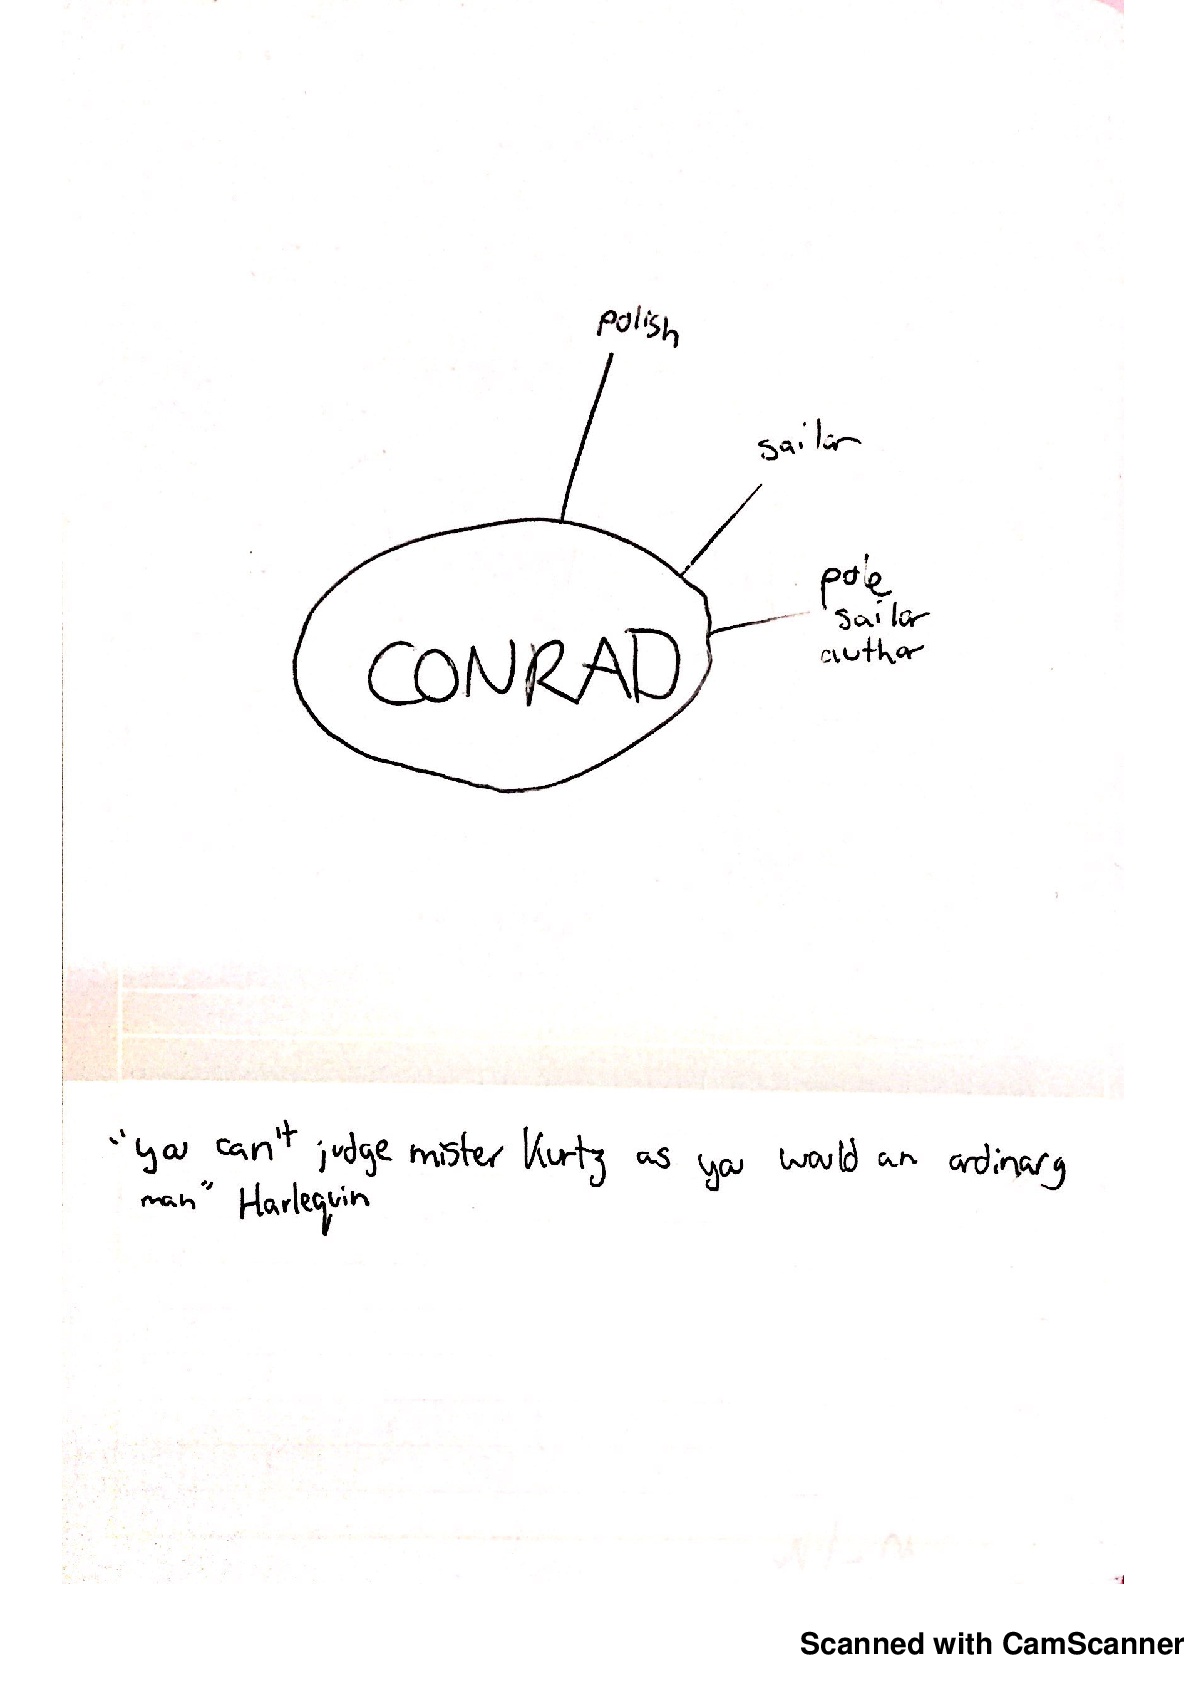 polish
sailor
pole
sailor
author
CONRAD
"you can't judge mister Kurtz as you would an ordinary
man" Harlequin
Scanned with CamScanner